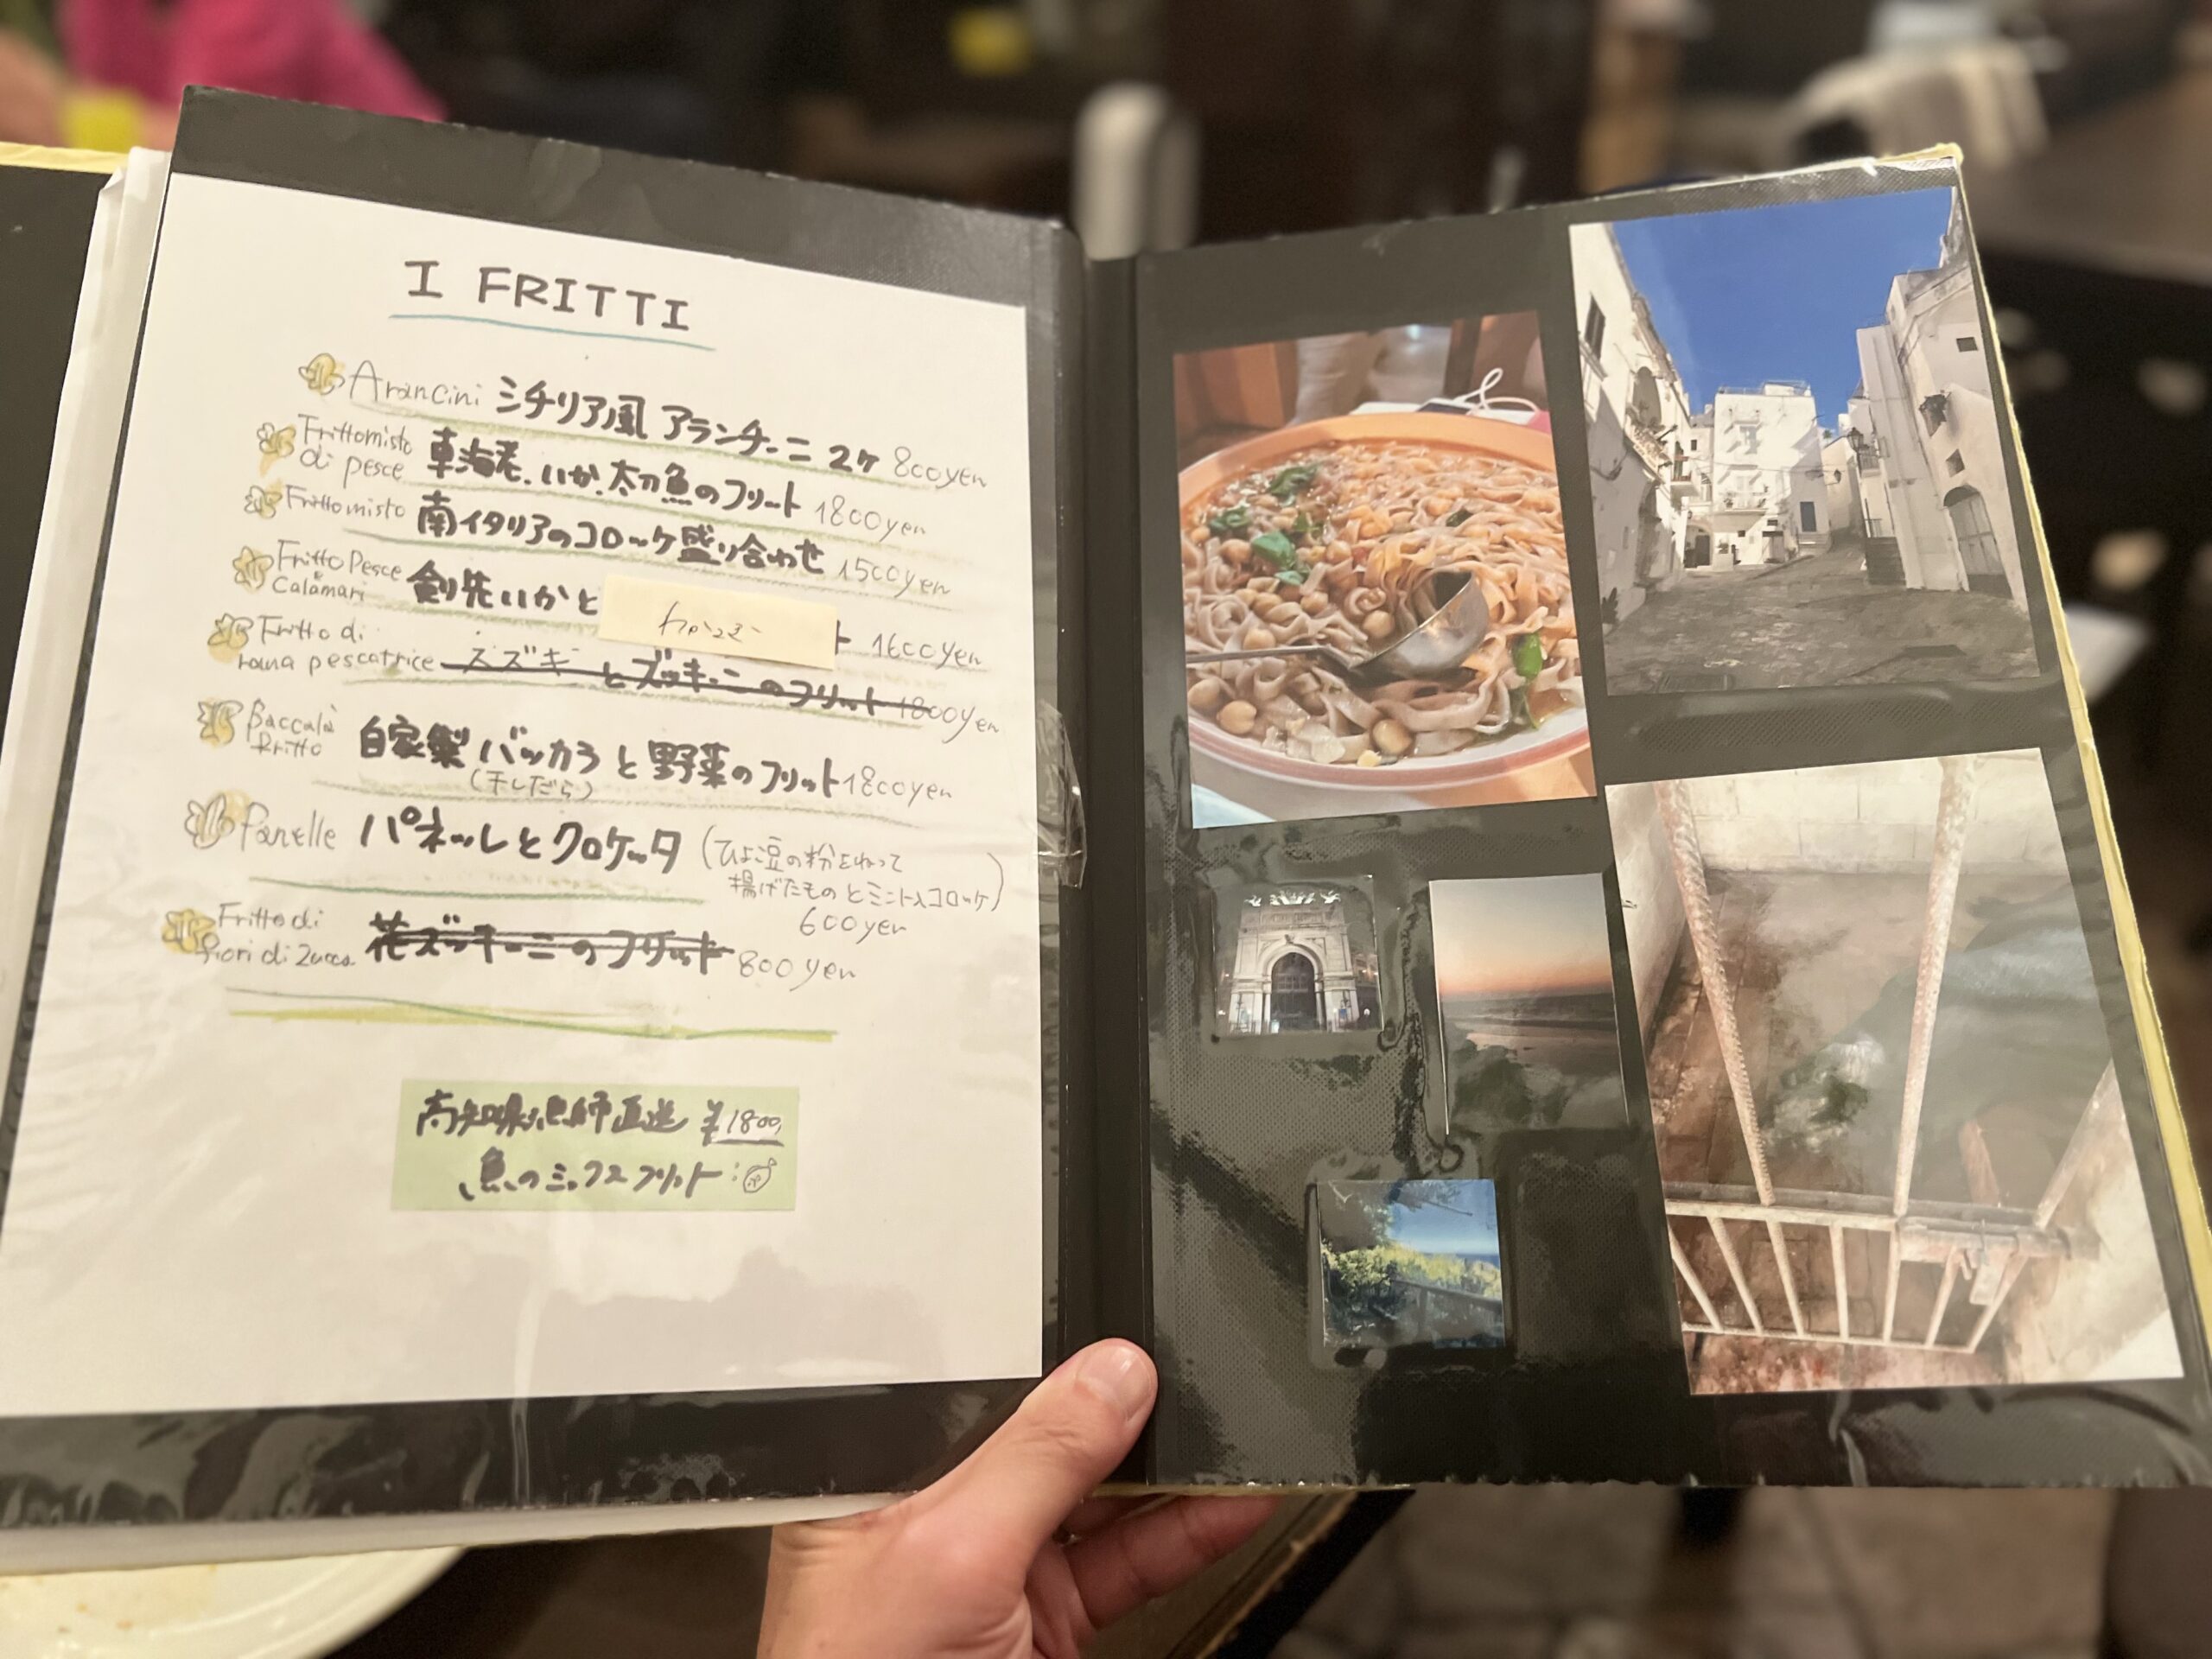 I FRITTI
Arancini シチリア風 アランチーニ 2ケ 800yen
Frittomisto di pesce 車海老、いか、太刀魚のフリット 1800yen
Frittomisto 南イタリアのコロッケ盛り合わせ 1500yen
Fritto Pesce e Calamari 剣先いかと ト 1600yen
Fritto di rana pescatrice スズキとズッキーニのフリット 1800yen
Baccalà Fritto 自家製バッカラと野菜のフリット 1800yen
(干しだら)
Panelle パネッレとクロケッタ (ひよこ豆の粉をねって
揚げたものとミント入コロッケ)
600yen
Fritto di fiori di zucca 花ズッキーニのフリット 800yen
高知県漁師直送 ¥1800,
魚のミックスフリット